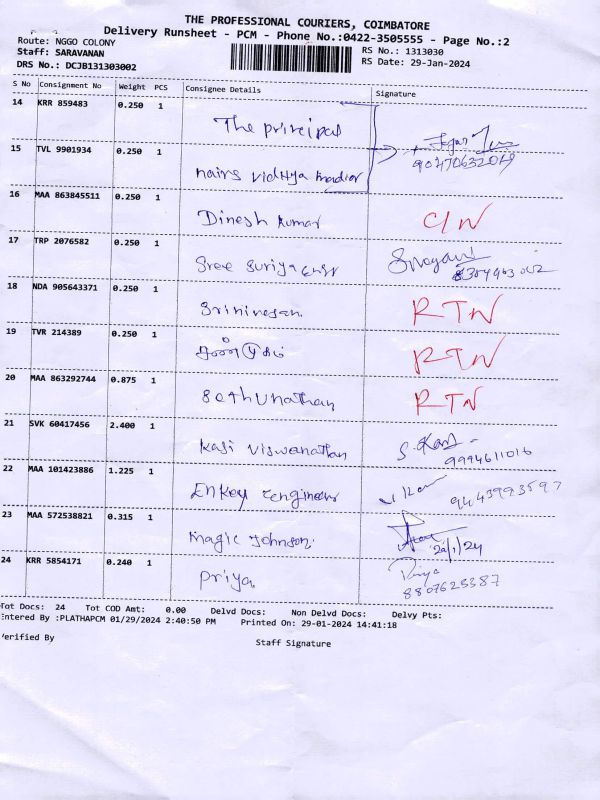 THE PROFESSIONAL COURIERS, COIMBATORE
Delivery Runsheet - PCM - Phone No.:0422-3505555 - Page No.:2
Route: NGGO COLONY
RS No.: 1313030
Staff: SARAVANAN
RS Date: 29-Jan-2024
DRS No.: DCJB131303002
S No Consignment No Weight PCS Consignee Details Signature
14 KRR 859483 0.250 1 The principal
15 TVL 9901934 0.250 1 nairs vidhya
16 MAA 863845511 0.250 1 Dinesh kumar C/N
17 TRP 2076582 0.250 1 Sree Suriya
18 NDA 905643371 0.250 1 Srinivesan RTN
19 TVR 214389 0.250 1 சண்முகம் RTN
20 MAA 863292744 0.875 1 Sethunathan RTN
21 SVK 60417456 2.400 1 Kasi Viswanathan
9994611016
22 MAA 101423886 1.225 1 Enkey engineers
9443993597
23 MAA 572538821 0.315 1 magic Johnson
24 KRR 5854171 0.240 1 Priya Priya
8807623387
Tot Docs: 24 Tot COD Amt: 0.00 Delvd Docs: Non Delvd Docs: Delvy Pts:
Entered By :PLATHAPCM 01/29/2024 2:40:50 PM Printed On: 29-01-2024 14:41:18
Verified By
Staff Signature